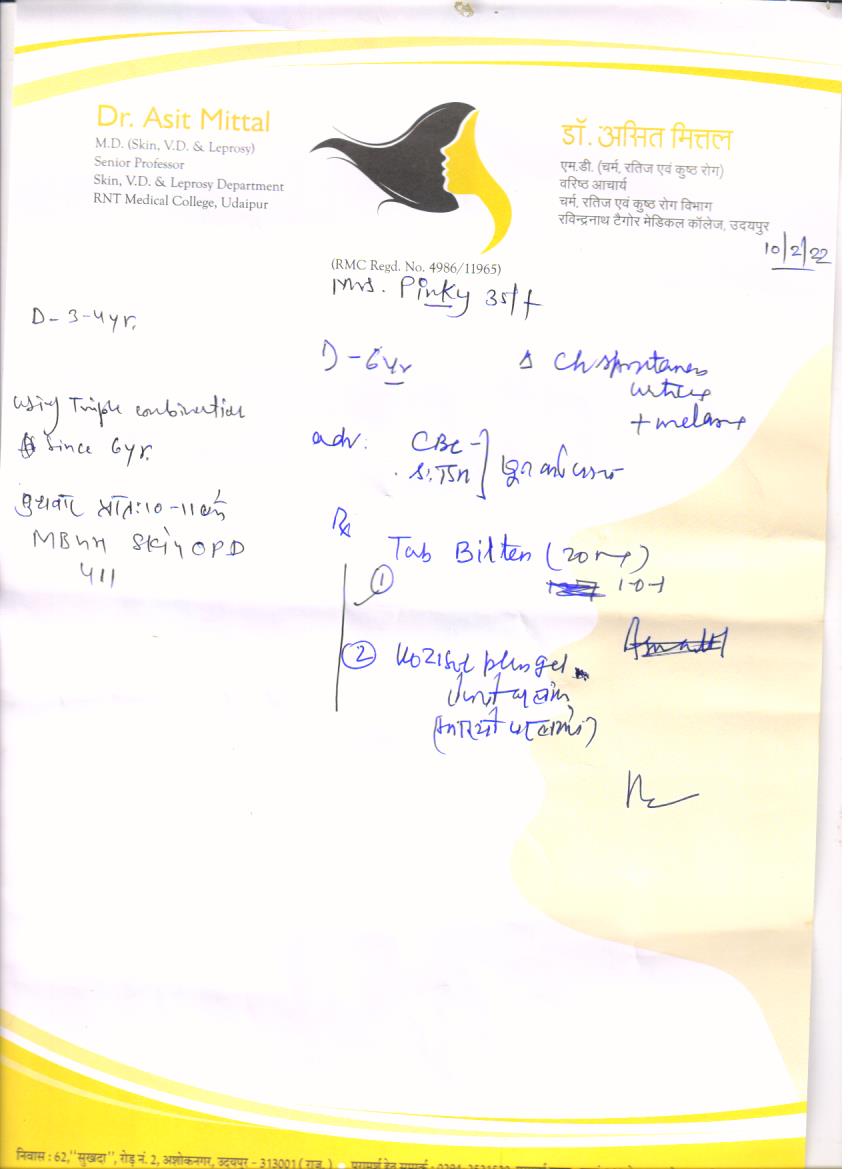 Dr. Asit Mittal
M.D. (Skin, V.D. & Leprosy)
Senior Professor
Skin, V.D. & Leprosy Department
RNT Medical College, Udaipur
डॉ. असित मित्तल
एम.डी. (चर्म, रतिज एवं कुष्ठ रोग)
वरिष्ठ आचार्य
चर्म, रतिज एवं कुष्ठ रोग विभाग
रविन्द्रनाथ टैगोर मेडिकल कॉलेज, उदयपुर
10/2/22
(RMC Regd. No. 4986/11965)
Mrs. Pinky 35/f
D- 3-4yr.
using Triple combination
since 6yr.
बुधवार प्रातः 10-11 बजे
Skin OPD
411
D-6yr
Ch spontaneous
urticaria
+ melasma
adv: CBC
S. TSH
Rx
Tab Bilten (20mg)
① 1-0-1
② Kozisol plus gel
निवास : 62,"सुखदा", रोड़ नं. 2, अशोकनगर, उदयपुर - 313001 ( राज. )